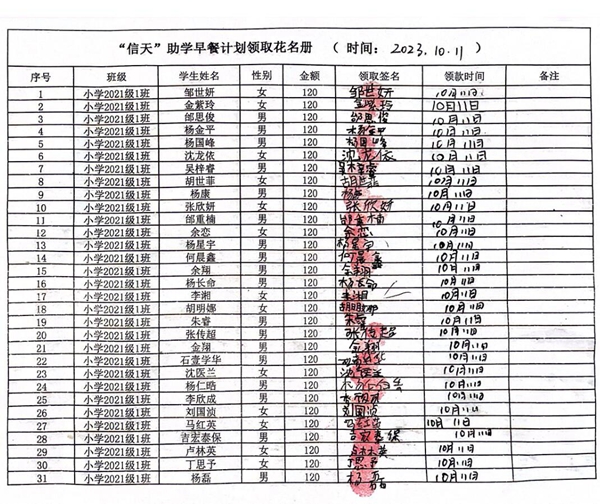 “信天”助学早餐计划领取花名册 （ 时间：2023.10.11 ）
序号 班级 学生姓名 性别 金额 领取签名 领款时间 备注
1 小学2021级1班 邹世妍 女 120 邹世妍 10月11日
2 小学2021级1班 金紫玲 女 120 金紫玲 10月11日
3 小学2021级1班 邰思俊 男 120 邰思俊 10月11日
4 小学2021级1班 杨金平 男 120 杨金平 10月11日
5 小学2021级1班 杨国峰 男 120 杨国峰 10月11日
6 小学2021级1班 沈龙依 女 120 沈龙依 10月11日
7 小学2021级1班 吴梓睿 男 120 吴梓睿 10月11日
8 小学2021级1班 胡世菲 女 120 胡世菲 10月11日
9 小学2021级1班 杨康 男 120 10月11日
10 小学2021级1班 张欣妍 女 120 张欣妍 10月11日
11 小学2021级1班 邰重楠 男 120 邰重楠 10月11日
12 小学2021级1班 余恋 女 120 余恋 10月11日
13 小学2021级1班 杨星宇 男 120 杨星宇 10月11日
14 小学2021级1班 何晨鑫 男 120 何晨鑫 10月11日
15 小学2021级1班 余翔 男 120 余翔 10月11日
16 小学2021级1班 杨长命 男 120 10月11日
17 小学2021级1班 李湘 女 120 李湘 10月11日
18 小学2021级1班 胡明娜 女 120 胡明娜 10月11日
19 小学2021级1班 朱睿 男 120 10月11日
20 小学2021级1班 张传超 男 120 张传超 10月11日
21 小学2021级1班 金翔 男 120 金翔 10月11日
22 小学2021级1班 石壹学华 男 120 10月11日
23 小学2021级1班 沈医兰 女 120 10月11日
24 小学2021级1班 杨仁皓 男 120 10月11日
25 小学2021级1班 李欣成 男 120 10月11日
26 小学2021级1班 刘国浈 女 120 刘国浈 10月11日
27 小学2021级1班 马红英 女 120 马红英 10月11日
28 小学2021级1班 吉宏泰保 男 120 吉宏泰保 10月11日
29 小学2021级1班 卢林英 女 120 卢林英 10月11日
30 小学2021级1班 丁思予 女 120 丁思予 10月11日
31 小学2021级1班 杨磊 男 120 杨磊 10月11日